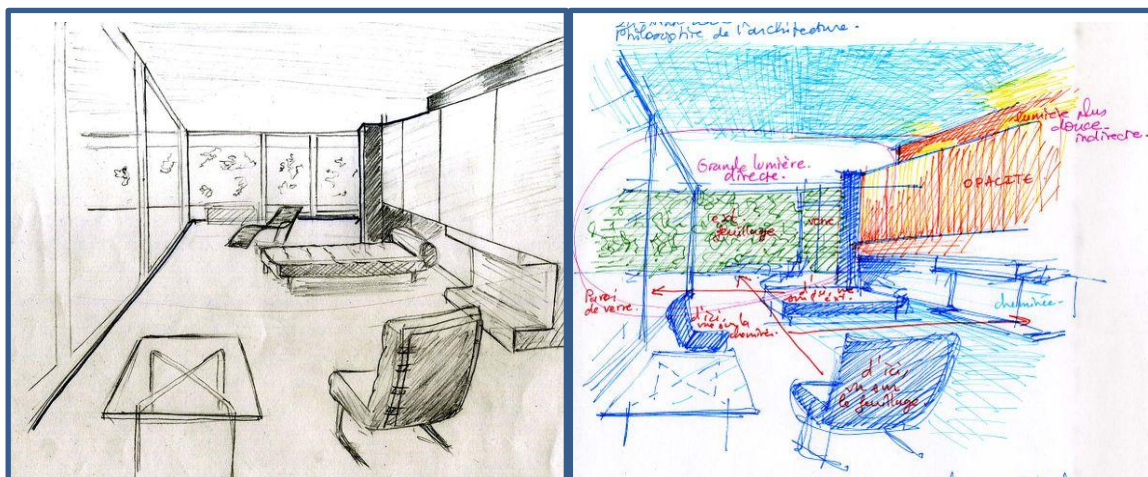 philosophie de l'architecture.
lumière plus
douce
indirecte.
Grande lumière
directe.
OPACITE
ext
feuillage
verre
Paroi
de verre.
d'ici,
vue sur la
cheminée
cheminée.
d'ici,
vue sur
le feuillage